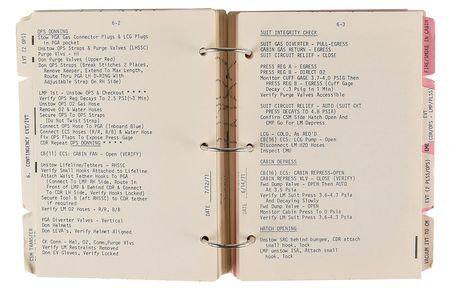 6-2
OPS DONNING
Stow PGA Gas Connector Plugs & LCG Plugs
in PGA pocket
Unstow OPS Straps & Purge Valves (LHSSC)
Purge Vlvs - HI
Don Purge Valves (Upper Red)
Don OPS Straps (Break Stitches 2 Places,
Remove Keeper, Extend To Max Length,
Route Thru PGA LH D-RING With
Adjustable Strap On RH Side)
LMP 1st - Unstow OPS & Checkout * * * *
Verify OPS Reg Decays To 2.5 PSI(~3 Min)
Unstow OPS O2 Gas Hose
Remove O2 & Water Hose
Secure OPS To OPS Straps
(Do Not Twist Strap)
Connect OPS Hose To PGA (Inboard Blue)
Connect ECS Hoses (R/R, B/B) & Water Hose
Fix OPS Flaps To Expose Press Gage
CDR Repeat OPS DONNING * * * * *
CB(11) ECS: CABIN FAN - Open (VERIFY)
Unstow Lifeline/Tethers - RHSSC
Verify Small Hooks Attached to Lifeline
Attach Waist Tether Hooks to PGA
(Connect To LMP RH Side, Route in
Front of LMP & Behind CDR & Connect
To CDR LH Side, Verify Hooks Locked)
Secure Tool B (aft RHSSC) to CDR tether
if required
Verify LM O2 Hoses - R/R, B/B
PGA Diverter Valves - Vertical
Don Helmets
Don LEVA's, Verify Helmet Aligned
CK Conn - Hal, O2, Comm,Purge Vlvs
Verify LM Restraints Removed
Don EV Gloves, Verify Locked
EVT (2 OPS)
6. CONTINGENCY EXT/IVT
CSM TRANSFER
DATE 7/12/71
DATE 7/12/71
6-3
SUIT INTEGRITY CHECK
SUIT GAS DIVERTER - PULL-EGRESS
CABIN GAS RETURN - EGRESS
SUIT CIRCUIT RELIEF - CLOSE
PRESS REG A - EGRESS
PRESS REG B - DIRECT O2
Monitor CUFF GAGE 3.7-4.0 PSIG Then
PRESS REG B - EGRESS (Cuff Gage
Decay <.3 Psig in 1 Min)
Verify Purge Valves Accessible
SUIT CIRCUIT RELIEF - AUTO (SUIT CKT
PRESS DECAYS TO 4.8 PSIA)
Confirm CSM Side Hatch Open And
CMP Go For LM Depress
LCG - COLD, As REQ'D
CB(16) ECS: LCG PUMP - Open
Disconnect LM H2O Hoses
Inspect EMU
CABIN DEPRESS
CB(16) ECS: CABIN REPRESS-OPEN
CABIN REPRESS VLV - CLOSE (VERIFY)
Fwd Dump Valve - OPEN Then AUTO
At 3.5 Psia
Verify LM Suit Press 3.6-4.3 Psia
And Decaying Slowly
Fwd Dump Valve - OPEN
Monitor Cabin Press To 0 Psia
Verify LM Suit Press 3.6-4.3 Psia
HATCH OPENING
Unstow SRC behind bungee, CDR attach
small hook, lock
LMP unstow ISA, Attach small
hook, lock
FIRE/SMOKE IN CABIN
EVT (2 PLSS/OPS)
VACUUM IVT TO CM